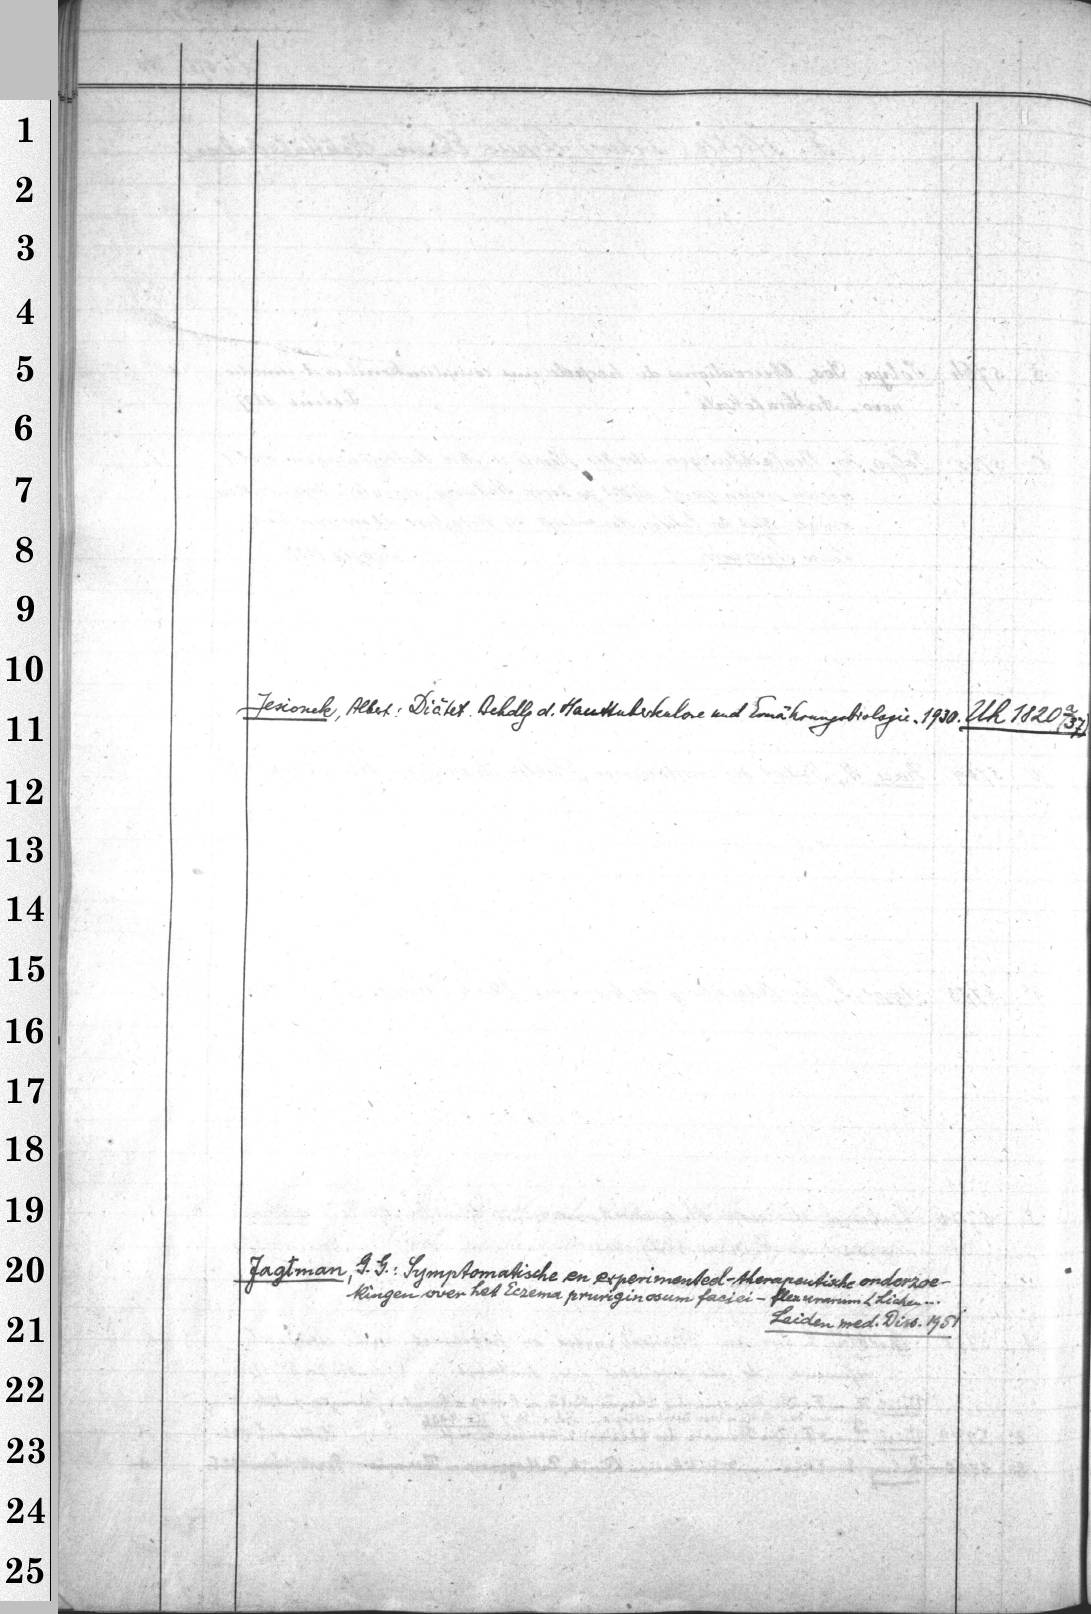 1
2
3
4
5
6
7
8
9
10
Jesionek, Albert: Diätet. Behdlg d. Hauttuberkulose und Ernährungsbiologie. 1930. Uh 1820 a (37)
11
12
13
14
15
16
17
18
19
20
Jagtman, G. G.: Symptomatische en experimenteel-therapeutische onderzoe-
kingen over het Eczema pruriginosum faciei - flexurarum (Lichen...
21
Leiden med. Diss. 1951
22
23
24
25